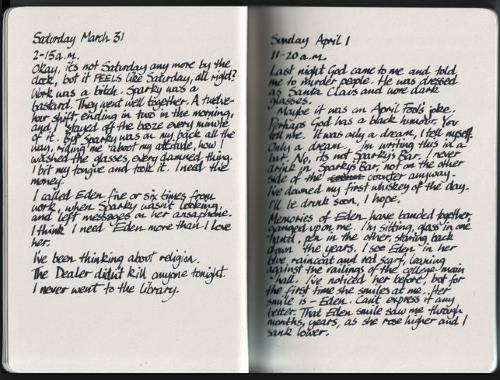 Saturday March 31
2-15 a.m.
Okay, it's not Saturday any more by the
clock, but it FEELS like Saturday, all right?
Work was a bitch. Sparky was a
bastard. They went well together. A twelve-
hour shift ending in two in the morning,
and I stayed off the booze every minute
of it. But Sparky was on my back all the
way, riding me about my attitude, how I
washed the glasses, every damned thing.
I bit my tongue and took it. I need the
money.
I called Eden five or six times from
work, when Sparky wasn't looking,
and left messages on her ansaphone.
I think I need Eden more than I love
her.
I've been thinking about religion.
The Dealer didn't kill anyone tonight.
I never went to the library.
Sunday April 1
11-20 a.m.
Last night God came to me and told
me to murder people. He was dressed
as Santa Claus and wore dark
glasses.
Maybe it was an April Fool's joke.
Perhaps God has a black humour. You
tell me. It was only a dream, I tell myself.
Only a dream. I'm writing this in a
bar. No, it's not Sparky's Bar. I never
drink in Sparky's Bar, not on the other
side of the counter anyway.
I've downed my first whiskey of the day.
I'll be drunk soon, I hope.
Memories of Eden have banded together,
ganged up on me. I'm sitting, glass in one
hand, pen in the other, staring back
down the years. I see Eden in her
blue raincoat and red scarf, leaning
against the railings of the college main
hall. I've noticed her before, but for
the first time she smiles at me. Her
smile is - Eden. Can't express it any
better. That Eden smile saw me through
months, years, as she rose higher and I
sank lower.